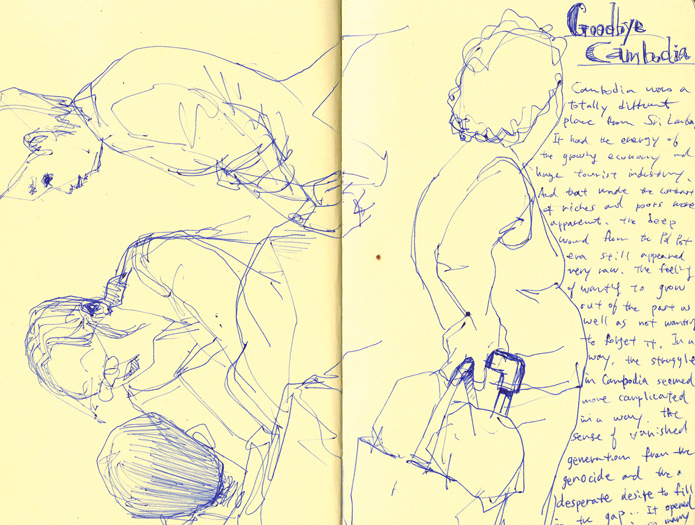 Goodbye
Cambodia
Cambodia was a
totally different
place from Sri Lanka
It had the energy of
the growing economy and
huge tourist industry.
And that made the contrast
of riches and poors more
apparent. The deep
wound from the Pol Pot
era still appeared
very raw. The feeling
of wanting to grow
out of the past as
well as not wanting
to forget it. In a
way, the struggle
in Cambodia seemed
more complicated
in a way. The
sense of vanished
generation from the
genocide and the a
desperate desire to fill
in the gap... It opened